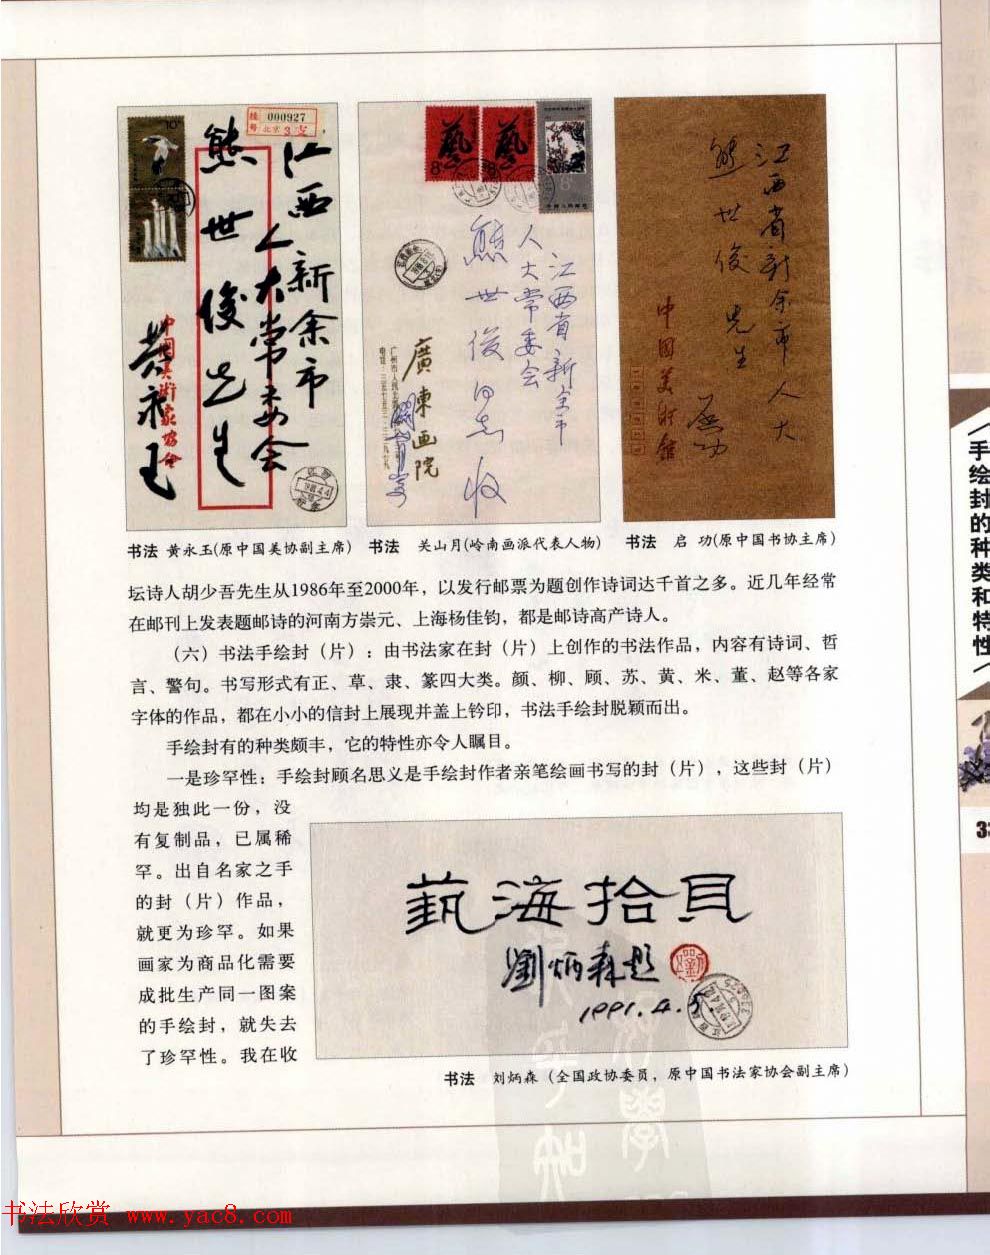 挂号
000927
北京 3 支
江西新余市
人大常委会
熊世俊先生
中国美术家协会
黄永玉
藝
8
藝
8
江西省新余市
人大常委会
熊世俊同志收
廣東画院
关山月
江西省新余市人大
熊世俊先生
启功
中國美術館
书法 黄永玉(原中国美协副主席)
书法 关山月(岭南画派代表人物)
书法 启 功(原中国书协主席)
坛诗人胡少吾先生从1986年至2000年，以发行邮票为题创作诗词达千首之多。近几年经常
在邮刊上发表题邮诗的河南方崇元、上海杨佳钧，都是邮诗高产诗人。
（六）书法手绘封（片）：由书法家在封（片）上创作的书法作品，内容有诗词、哲
言、警句。书写形式有正、草、隶、篆四大类。颜、柳、顾、苏、黄、米、董、赵等各家
字体的作品，都在小小的信封上展现并盖上钤印，书法手绘封脱颖而出。
手绘封有的种类颇丰，它的特性亦令人瞩目。
一是珍罕性：手绘封顾名思义是手绘封作者亲笔绘画书写的封（片），这些封（片）
均是独此一份，没
有复制品，已属稀
罕。出自名家之手
的封（片）作品，
就更为珍罕。如果
画家为商品化需要
成批生产同一图案
的手绘封，就失去
了珍罕性。我在收
藝海拾貝
劉炳森題
1991.4.5.
书法 刘炳森（全国政协委员，原中国书法家协会副主席）
手绘封的种类和特性
33
书法欣赏 www.yac8.com